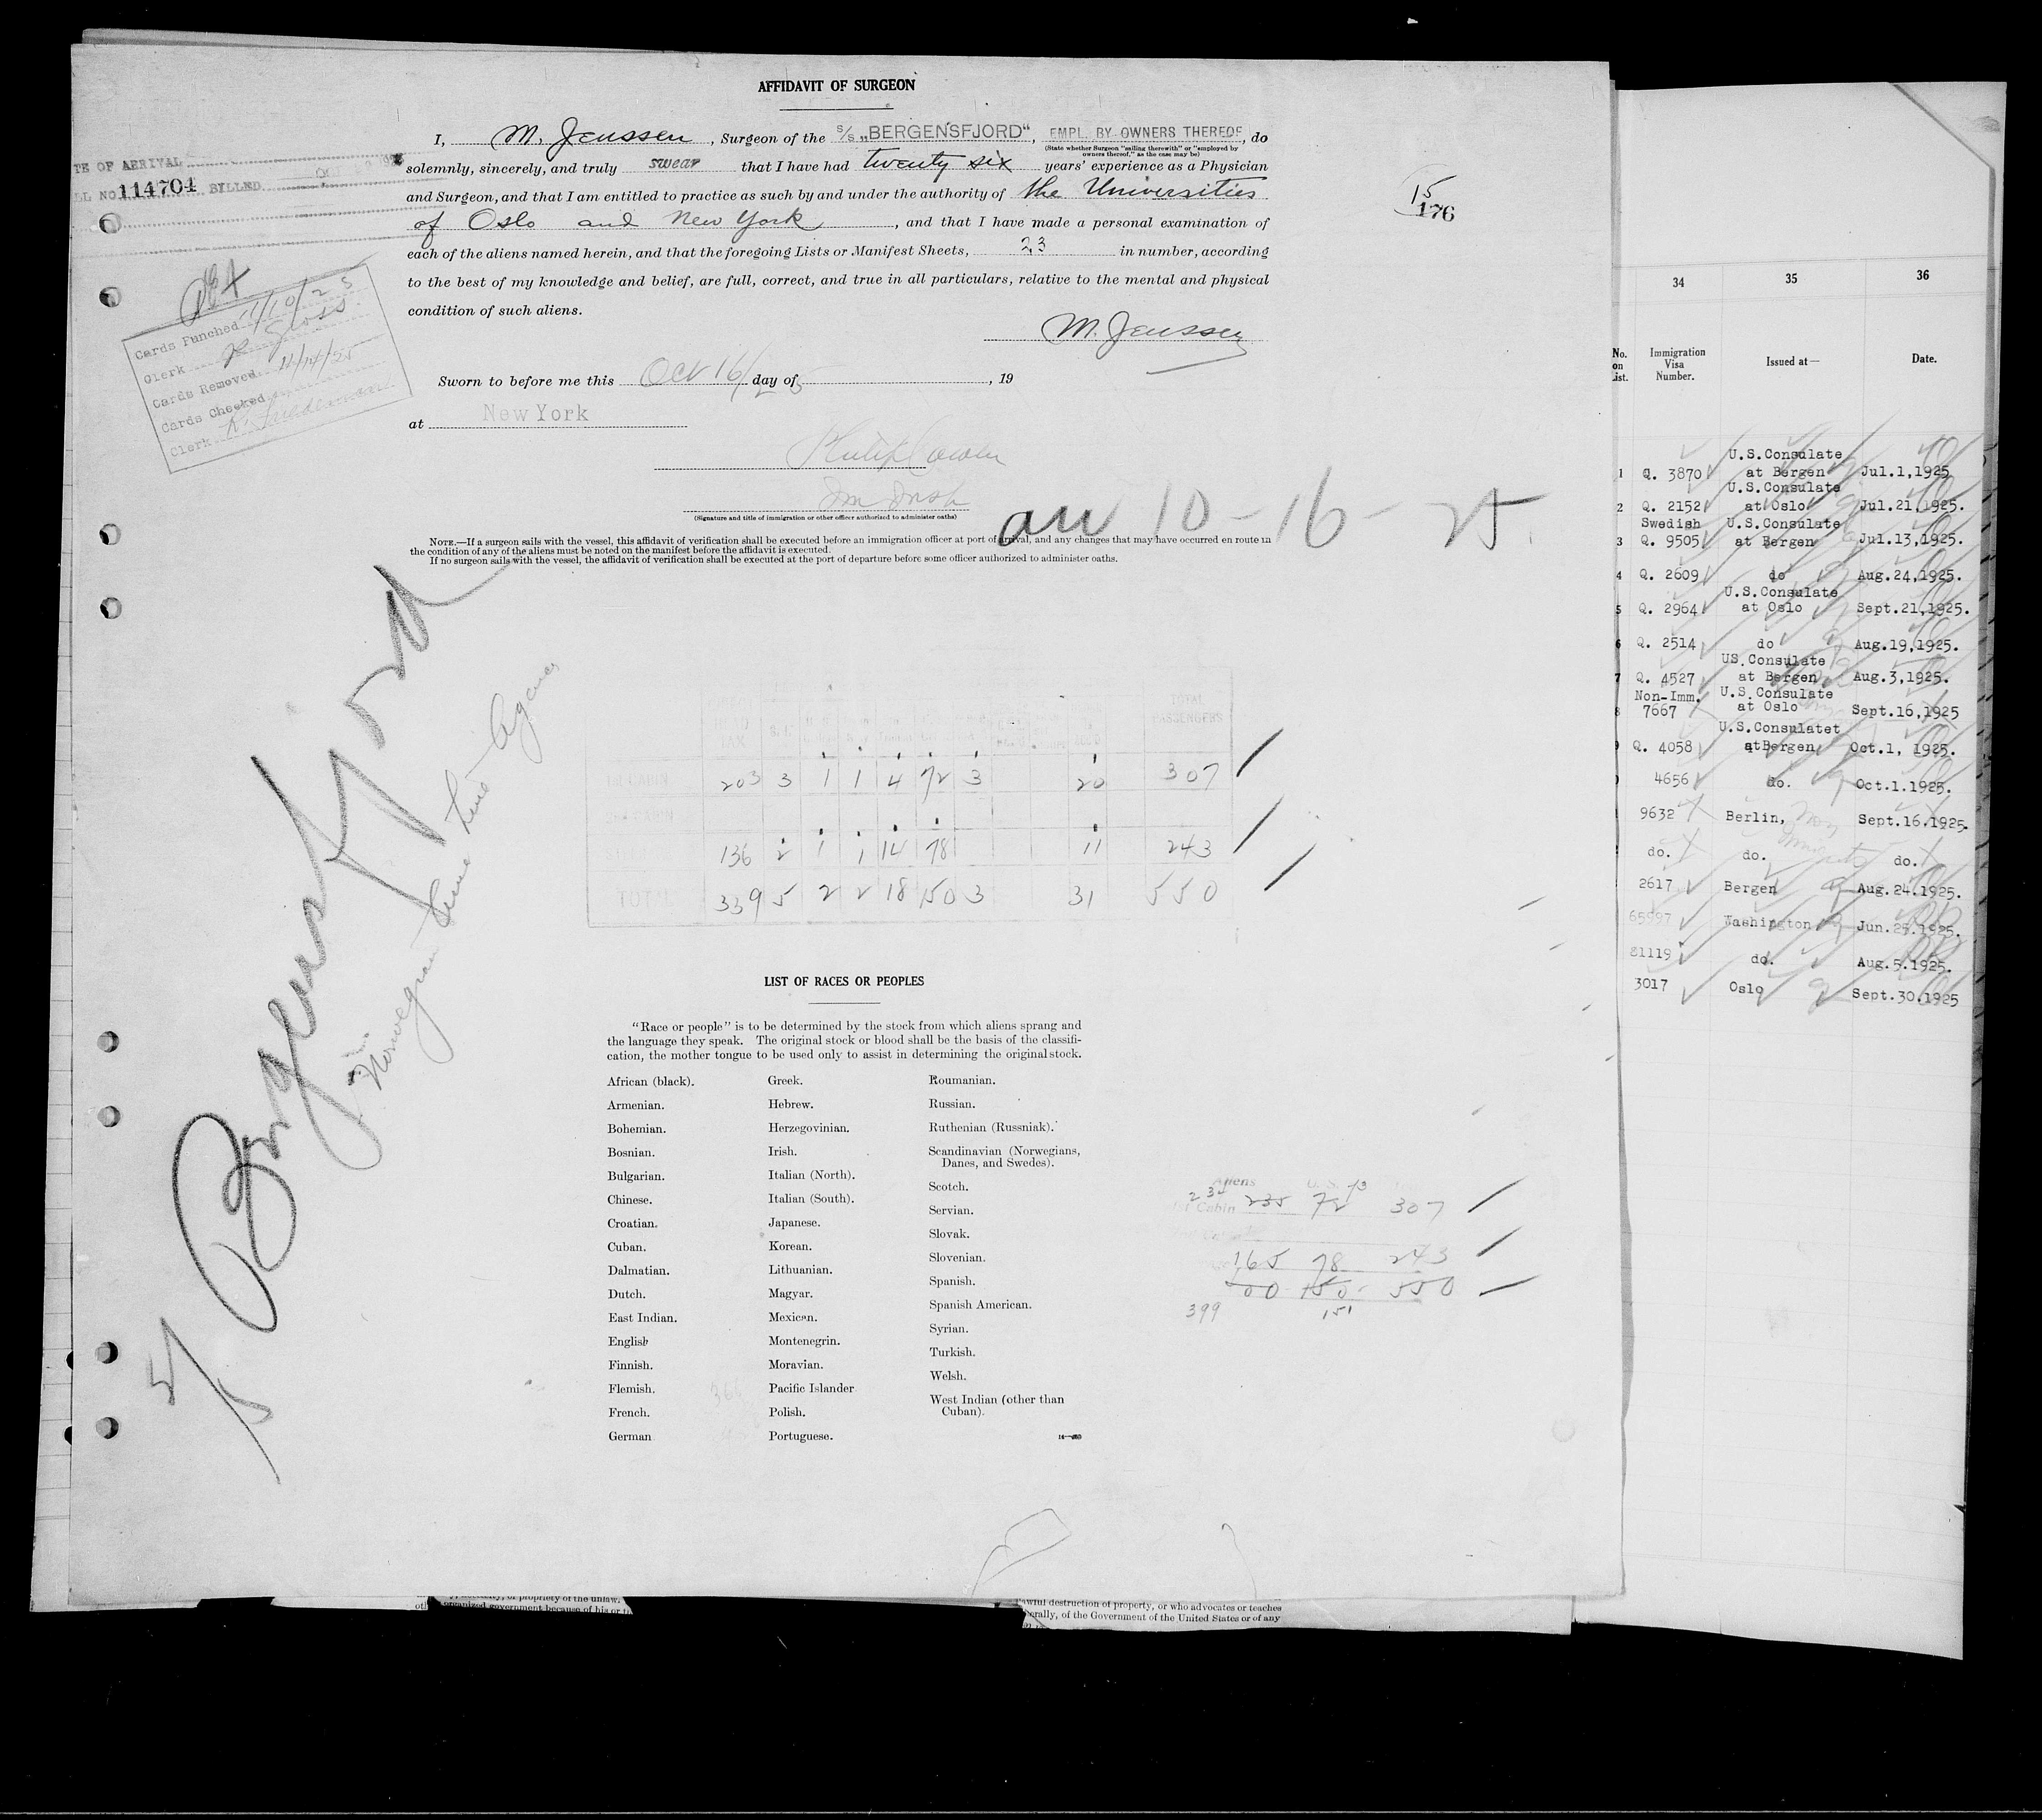 AFFIDAVIT OF SURGEON
I, M. Jenssen, Surgeon of the S/S „BERGENSFJORD", EMPL. BY OWNERS THEREOF, do
(State whether Surgeon "sailing therewith" or "employed by
owners thereof," as the case may be)
solemnly, sincerely, and truly swear that I have had twenty six years' experience as a Physician
and Surgeon, and that I am entitled to practice as such by and under the authority of the Universities
of Oslo and New York, and that I have made a personal examination of
each of the aliens named herein, and that the foregoing Lists or Manifest Sheets, 23 in number, according
to the best of my knowledge and belief, are full, correct, and true in all particulars, relative to the mental and physical
condition of such aliens.
M. Jenssen
Sworn to before me this Oct 16/25 day of , 19
at New York
(Signature and title of immigration or other officer authorized to administer oaths)
NOTE.—If a surgeon sails with the vessel, this affidavit of verification shall be executed before an immigration officer at port of arrival, and any changes that may have occurred en route in
the condition of any of the aliens must be noted on the manifest before the affidavit is executed.
If no surgeon sails with the vessel, the affidavit of verification shall be executed at the port of departure before some officer authorized to administer oaths.
TE OF ARRIVAL
LL NO. 114704 BILLED
Cards Punched 11/10/25
Clerk
Cards Removed 11/14/25
Cards Checked
Clerk
15
176
10-16-25.
S/S Bergensfjord
Norwegian Amer Line Agency
HEAD
TAX
TOTAL
PASSENGERS
203 3 1 1 4 72 3 20 307
136 2 1 1 14 78 11 243
TOTAL 339 5 2 2 18 150 3 31 550
LIST OF RACES OR PEOPLES
"Race or people" is to be determined by the stock from which aliens sprang and
the language they speak. The original stock or blood shall be the basis of the classifi-
cation, the mother tongue to be used only to assist in determining the original stock.
African (black).
Armenian.
Bohemian.
Bosnian.
Bulgarian.
Chinese.
Croatian.
Cuban.
Dalmatian.
Dutch.
East Indian.
English
Finnish.
Flemish.
French.
German
Greek.
Hebrew.
Herzegovinian.
Irish.
Italian (North).
Italian (South).
Japanese.
Korean.
Lithuanian.
Magyar.
Mexican.
Montenegrin.
Moravian.
Pacific Islander
Polish.
Portuguese.
Roumanian.
Russian.
Ruthenian (Russniak).
Scandinavian (Norwegians,
Danes, and Swedes).
Scotch.
Servian.
Slovak.
Slovenian.
Spanish.
Spanish American.
Syrian.
Turkish.
Welsh.
West Indian (other than
Cuban).
Aliens U.S.
234 73
Cabin 235 72 307
165 78 243
400 150 550
399 151
34 35 36
No.
on
List.
Immigration
Visa
Number.
Issued at—
Date.
1 Q. 3870 U.S.Consulate at Bergen Jul.1,1925
2 Q. 2152 U.S.Consulate at Oslo Jul.21,1925.
3 Swedish Q. 9505 U.S.Consulate at Bergen Jul.13,1925.
4 Q. 2609 do Aug.24,1925.
5 Q. 2964 U.S.Consulate at Oslo Sept.21,1925.
6 Q. 2514 do Aug.19,1925.
7 Q. 4527 US.Consulate at Bergen Aug.3,1925.
8 Non-Imm. 7667 U.S.Consulate at Oslo Sept.16,1925
9 Q. 4058 U.S.Consulatet atBergen Oct.1, 1925.
4656 do. Oct.1.1925.
9632 Berlin, Sept.16.1925.
do. do. do.
2617 Bergen Aug.24.1925.
65997 Washington Jun.25.1925.
81119 do. Aug.5.1925.
3017 Oslo Sept.30.1925
or propriety of the unlaw-
organized government because of his or
awful destruction of property, or who advocates or teaches
erally, of the Government of the United States or of any